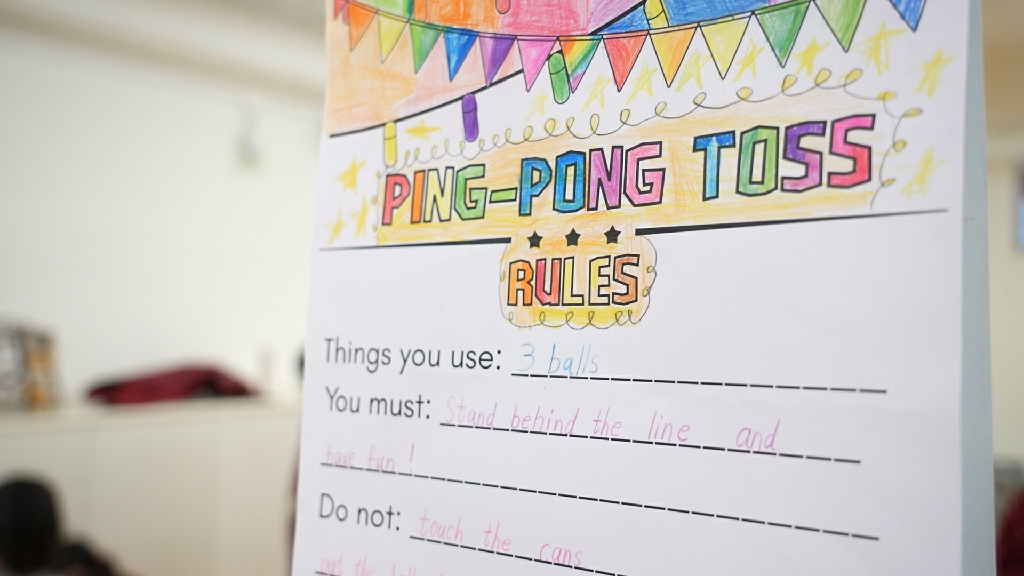 PING-PONG TOSS
RULES
Things you use: 3 balls
You must: Stand behind the line and
have fun!
Do not: touch the cans
put the ball